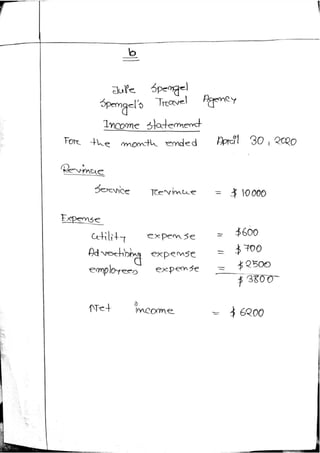 b
Julie Spengel
Spengel's Travel Agency
Income statement
For the month ended April 30, 2020
Revinue
Service Revinue = $ 10000
Expense
Utility expense = $600
Advertising expense = $700
employees expense = $2500
$ 3800
Net income = $ 6200